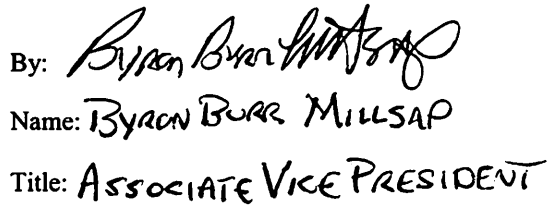 By: Byron Burr Millsap
Name: BYRON BURR MILLSAP
Title: ASSOCIATE VICE PRESIDENT